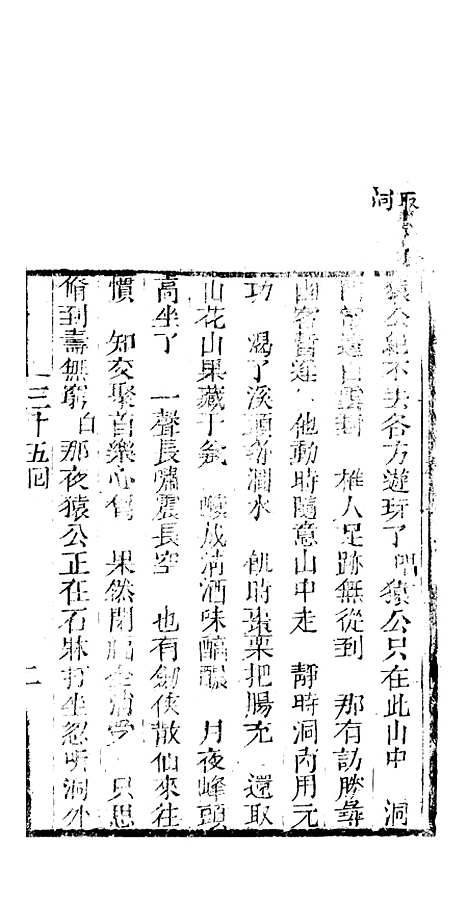 猿公絕不去各方遊玩了唱猿公只在此山中　洞
門常遶白雲封　樵人足跡無從到　那有訪勝尋
幽客當逢　他動時隨意山中走　靜時洞內用元
功　渴了溪頭斟澗水　飢時棗栗把腸充　還取
山花山果藏于甕　釀成淸酒味醕醲　月夜峰頭
高坐了　一聲長嘯震長空　也有劍俠散仙來往
慣　知交聚首樂心胷　果然閒福全消受　只思
脩到壽無窮白那夜猿公正在石牀打坐忽听洞外
三十五回　二